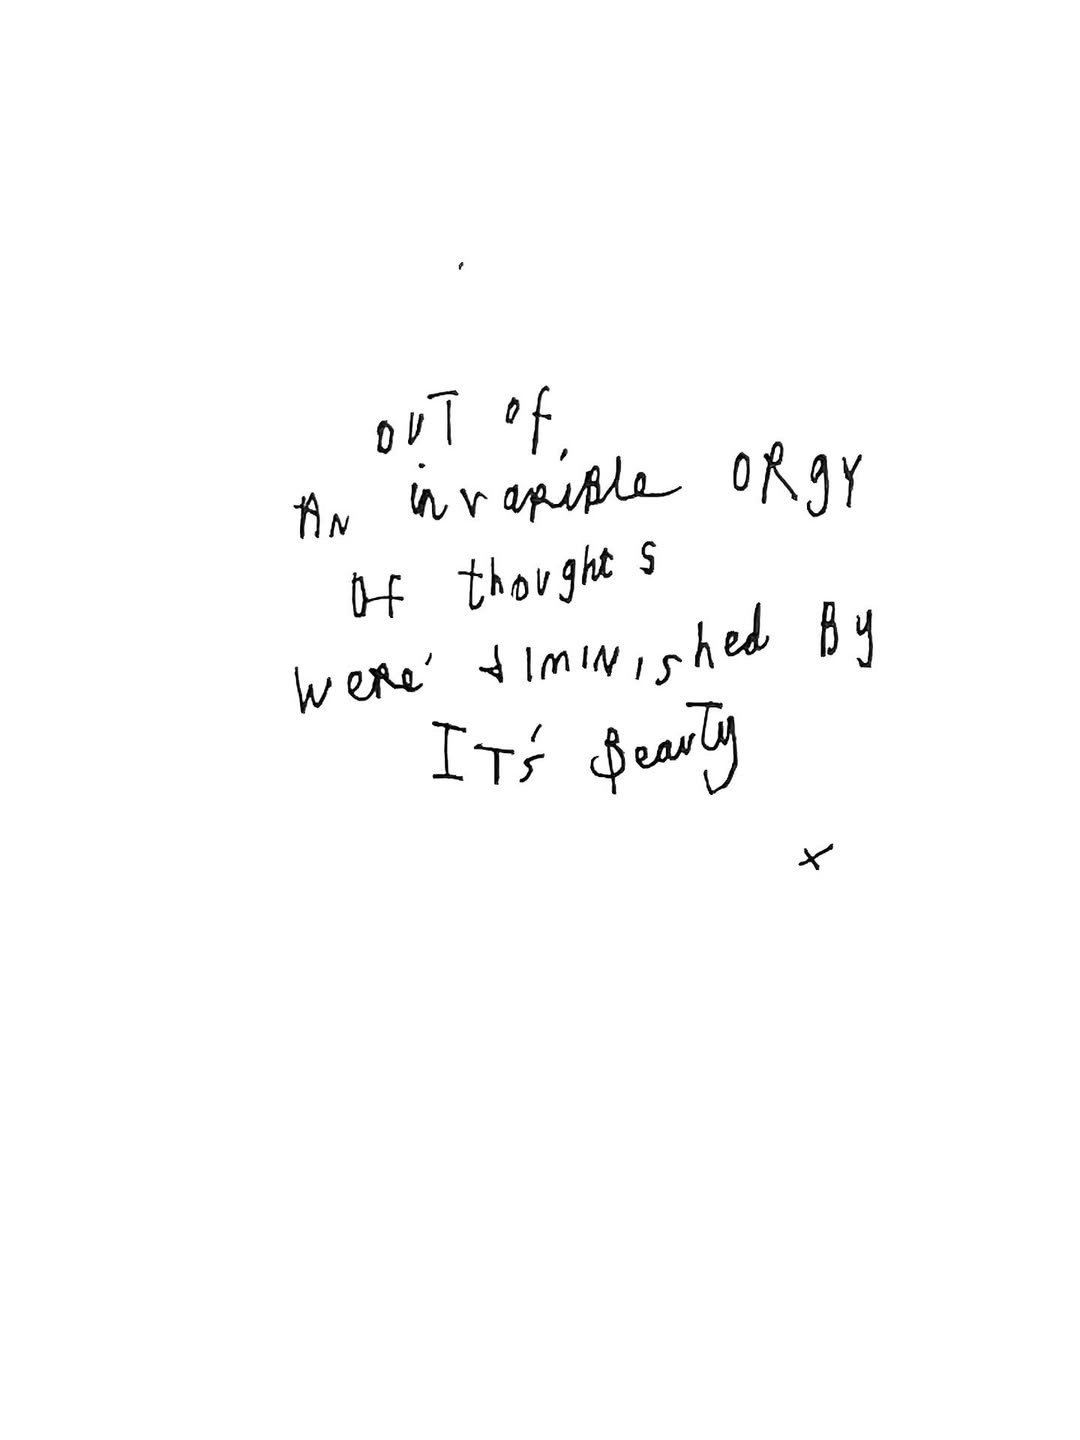 OUT Of
AN invariBle ORgY
Of thoughts
WeRe' dIMINished By
IT's Beauty
x